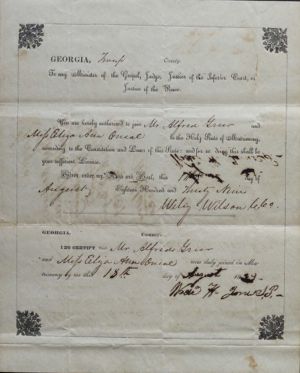 GEORGIA, Troup County.
To any Minister of the Gospel, Judge, Justice of the Inferior Court, or
Justice of the Peace.
You are hereby authorized to join Mr Alfred Greer and
Miss Eliza Ann Oneal in the Holy State of Matrimony,
according to the Constitution and Laws of this State: and for so doing this shall be
your sufficient License.
Given under my Hand and Seal, this day of
August Eighteen Hundred and Thirty Nine
Wily Wilson
GEORGIA. County:
I DO CERTIFY that Mr Alfred Greer
and Miss Eliza Ann Oneal were duly joined in Ma-
trimony by me this 18th day of August
H. Jones J.P.